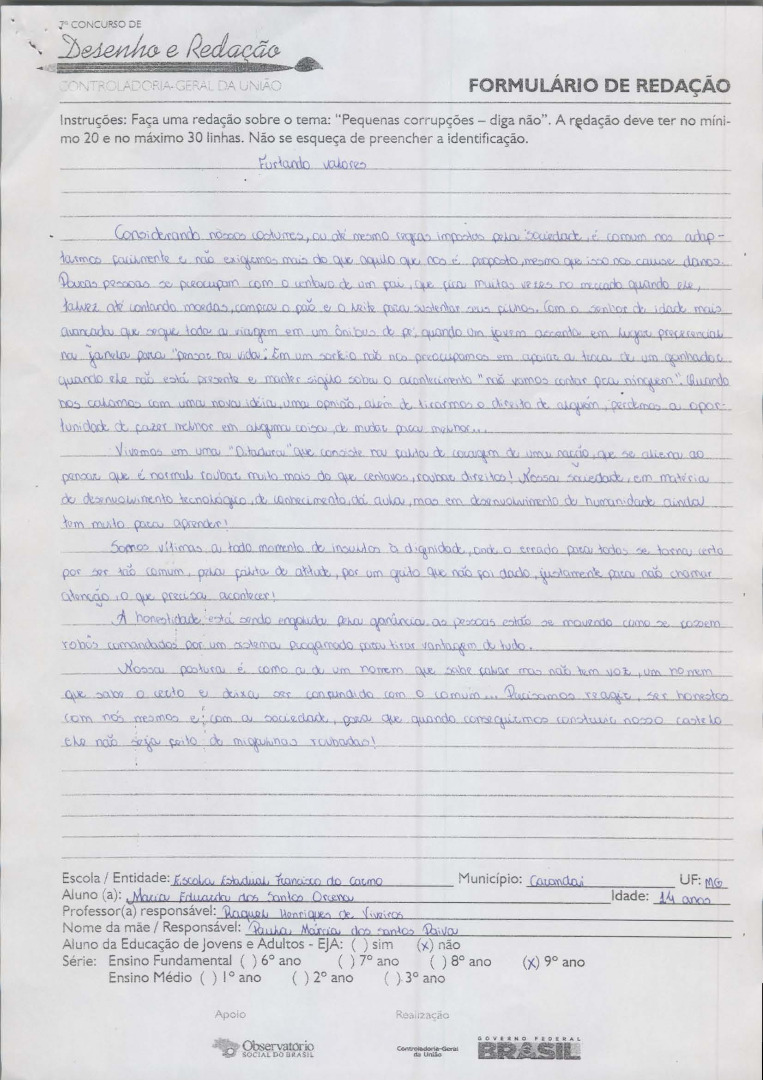 7º CONCURSO DE
Desenho e Redação
CONTROLADORIA-GERAL DA UNIÃO
FORMULÁRIO DE REDAÇÃO
Instruções: Faça uma redação sobre o tema: "Pequenas corrupções – diga não". A redação deve ter no míni-
mo 20 e no máximo 30 linhas. Não se esqueça de preencher a identificação.
Furtando valores
Considerando nossos costumes, ou até mesmo regras impostas pela sociedade, é comum nos adap-
tarmos facilmente e não exigirmos mais do que aquilo que nos é proposto, mesmo que isso nos cause danos.
Poucas pessoas se preocupam com o centavo de um pai, que fica muitas vezes no mercado quando ele,
talvez até contando moedas, compra o pão e o leite para sustentar seus filhos. Com o senhor de idade mais
avançada que segue toda a viagem em um ônibus de pé, quando um jovem assenta em lugar preferencial
na janela para "pensar na vida". Em um sorteio não nos preocupamos em apoiar a troca de um ganhador
quando ele não está presente e manter sigilo sobre o acontecimento "não vamos contar pra ninguém". Quando
nos calamos com uma nova idéia, uma opinião, além de tirarmos o direito de alguém, perdemos a opor-
tunidade de fazer melhor em alguma coisa, de mudar para melhor...
Vivemos em uma "Ditadura" que consiste na falta de coragem de uma nação, que se aliena ao
pensar que é normal roubar muito mais do que centavos, roubar direitos! Nossa sociedade, em matéria
de desenvolvimento tecnológico, de conhecimento, dá aula, mas em desenvolvimento de humanidade ainda
tem muito para aprender!
Somos vítimas a todo momento de insultos à dignidade, onde o errado para todos se torna certo
por ser tão comum, pela falta de atitude, por um grito que não foi dado, justamente para não chamar
atenção, o que precisa acontecer!
A honestidade está sendo engolida pela ganância, as pessoas estão se movendo como se fossem
robôs comandados por um sistema progamado para tirar vantagem de tudo.
Nossa postura é como a de um homem que sabe falar mas não tem voz, um homem
que sabe o certo e deixa ser confundido com o comum... Precisamos reagir, ser honestos
com nós mesmos e com a sociedade, para que quando conseguirmos construir nosso castelo
ele não seja feito de migalhas roubadas!
Escola / Entidade: Escola Estadual Francisco do Carmo Município: Carandaí UF: MG
Aluno (a): Maria Eduarda dos Santos Idade: 14 anos
Professor(a) responsável: Raquel Henriques de Viveiros
Nome da mãe / Responsável: Paula Márcia dos Santos Paiva
Aluno da Educação de Jovens e Adultos - EJA: ( ) sim (x) não
Série: Ensino Fundamental ( ) 6º ano ( ) 7º ano ( ) 8º ano (x) 9º ano
Ensino Médio ( ) 1º ano ( ) 2º ano ( ) 3º ano
Apoio Realização
Observatório
SOCIAL DO BRASIL
Controladoria-Geral
da União
GOVERNO FEDERAL
BRASIL